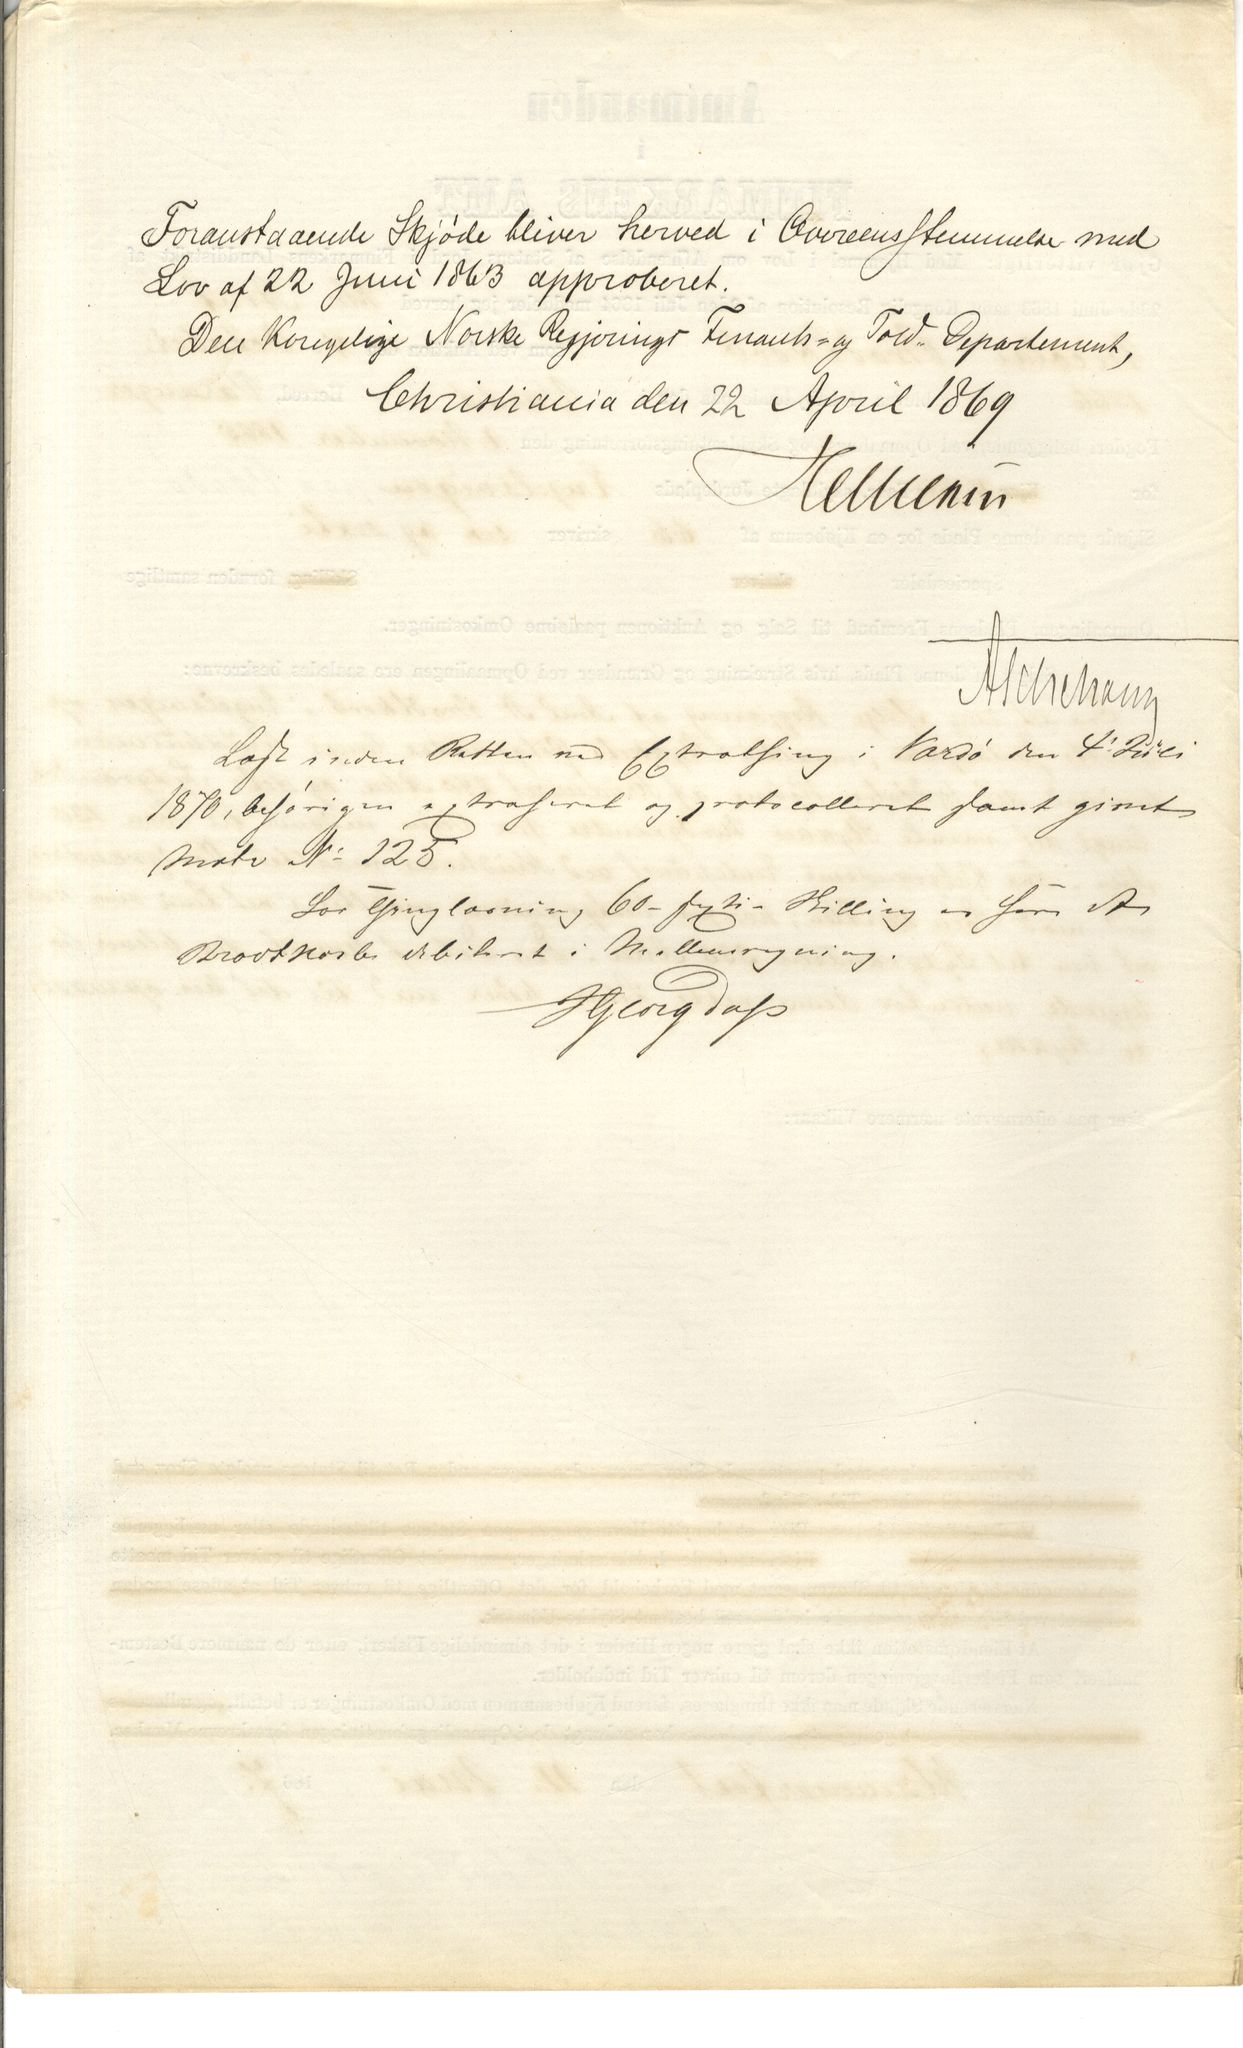 Foranstaaende Skjøde bliver herved i Overeensstemmelse med
Lov af 22 Juni 1863 approberet.
Den Kongelige Norske Regjerings Finants- og Told-Departement,
Christiania den 22 April 1869
Aschehoug
Læst inden Retten ved Extrathing i Vardø den 4de Juli
1870, behørigen extraheret og protocolleret samt givet
Mate No 125.
For Thinglæsning 60 - sexti - Skilling er Herr A
Brodtkorb debiteret i Mellemregning.
HGeorg Dass